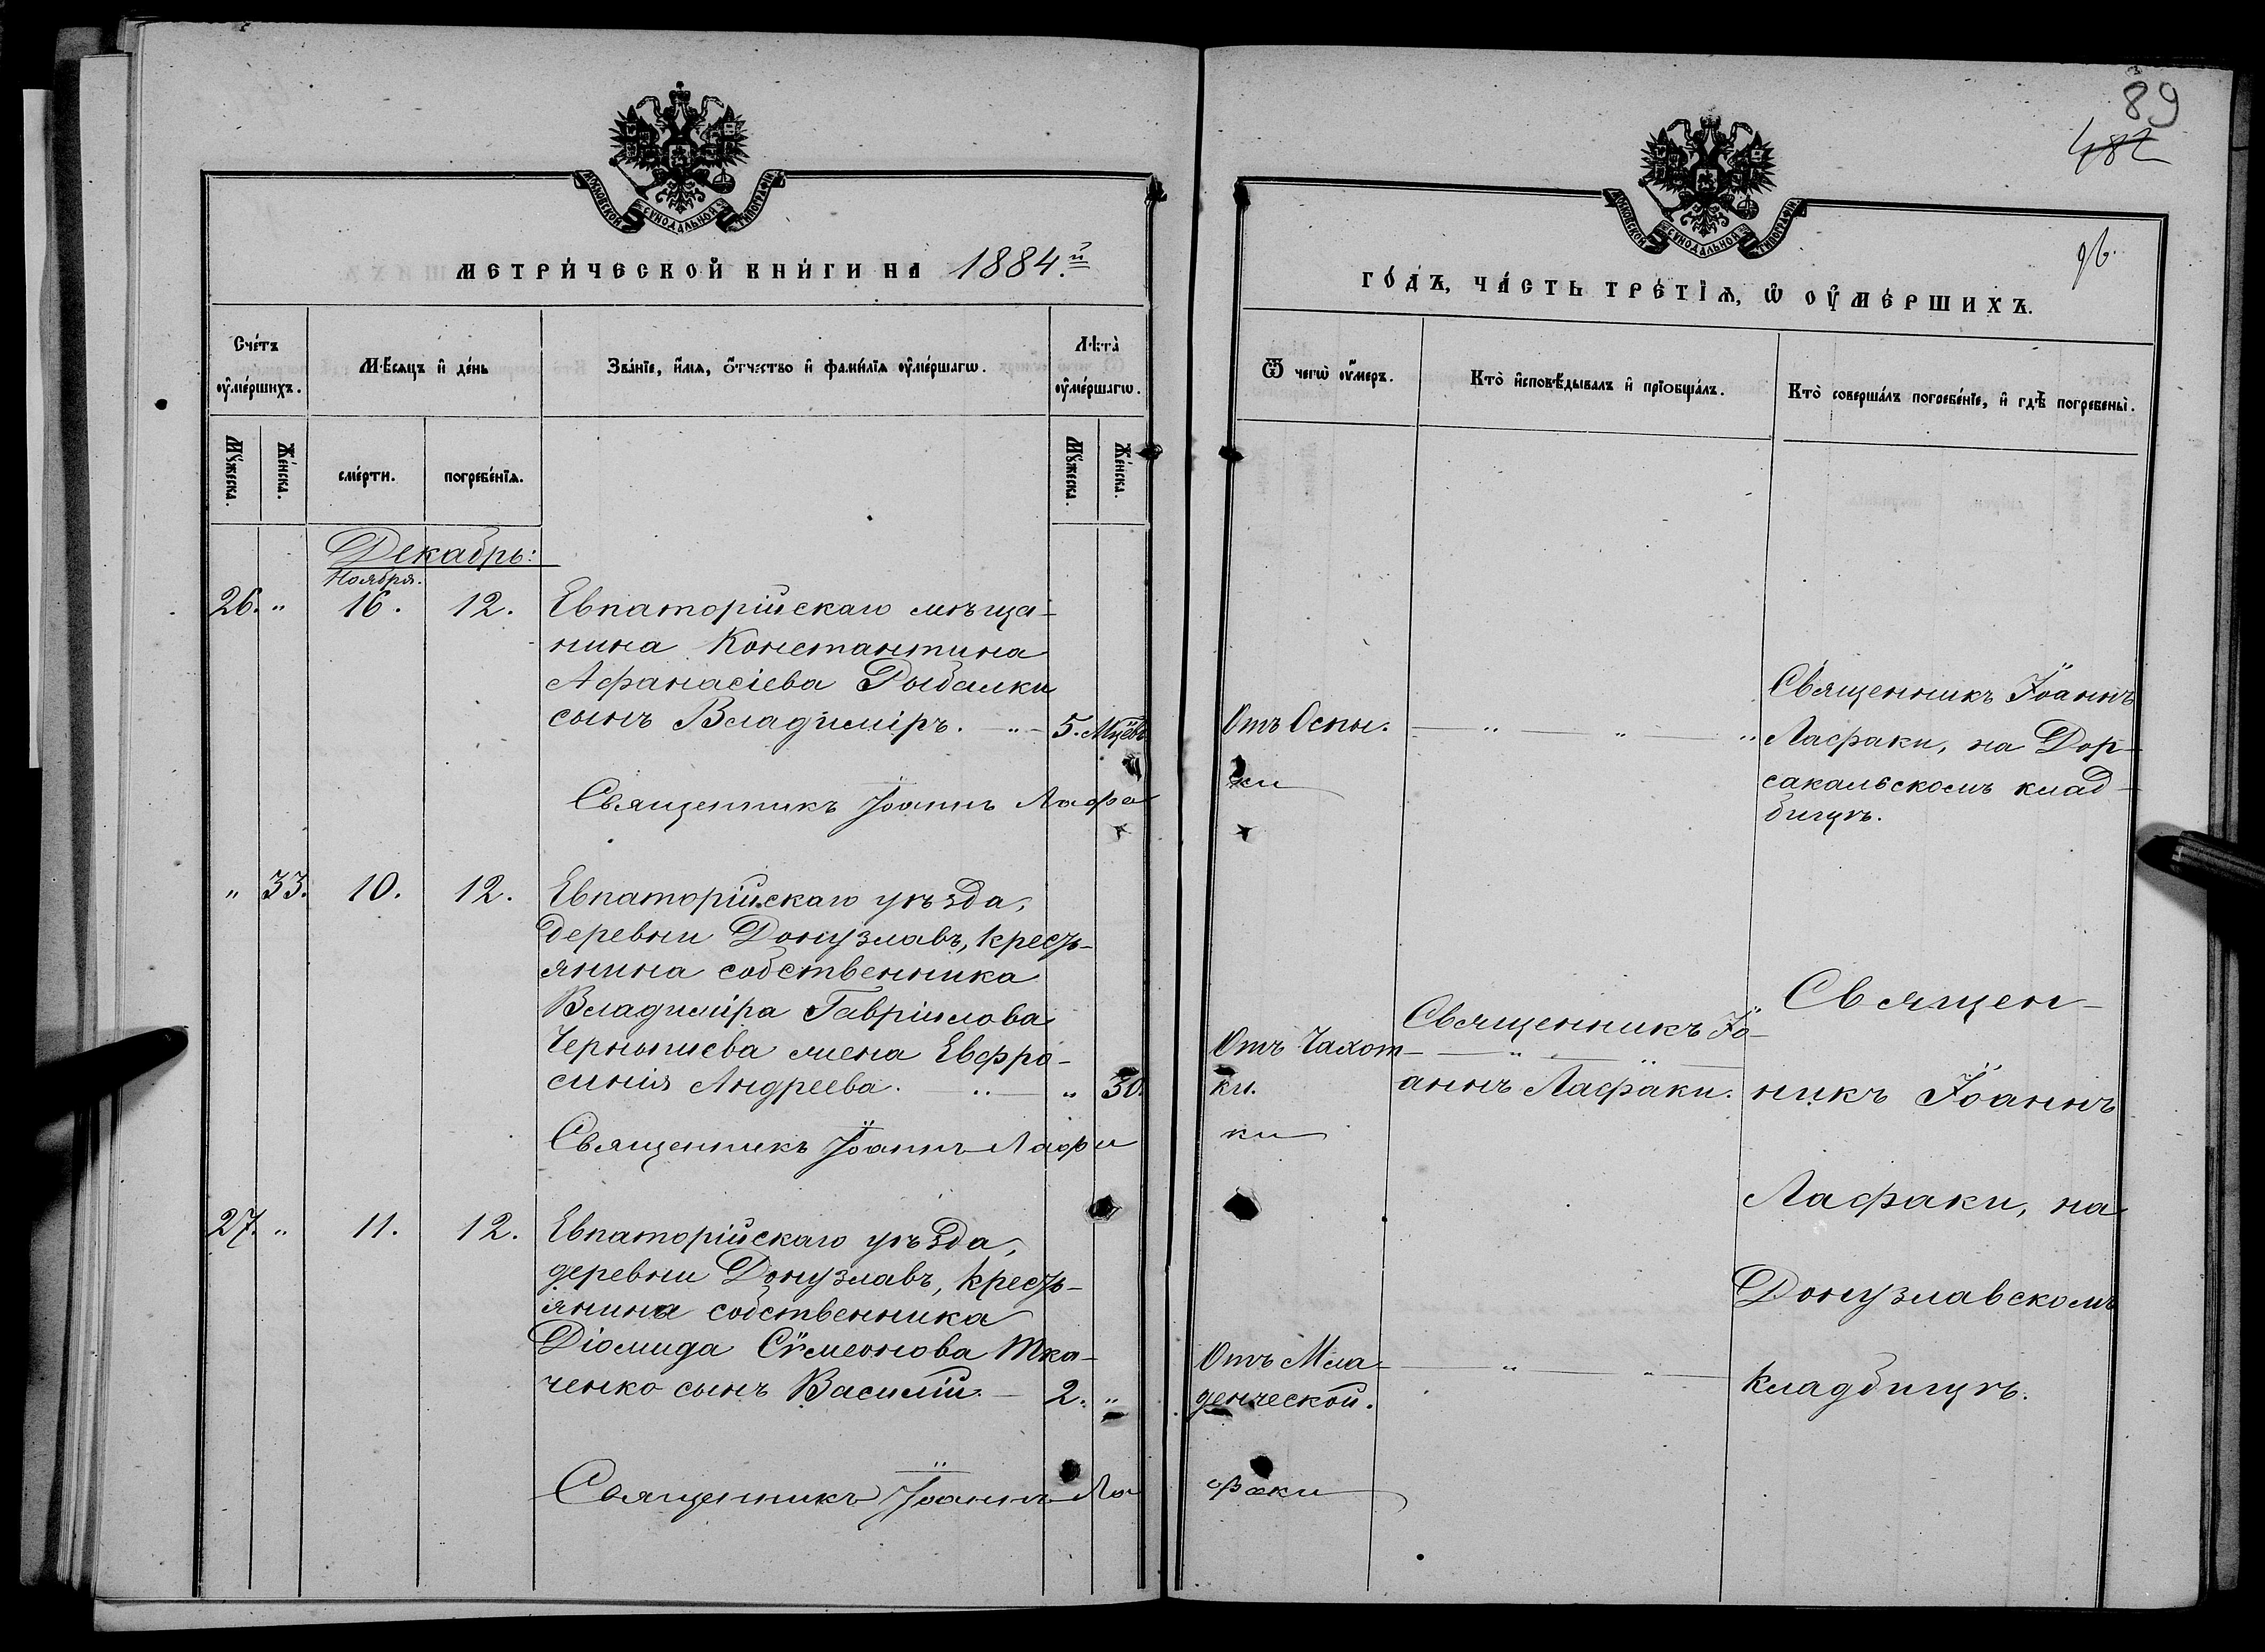 89
482
96.
МОСКОВСКОЙ СѴНОДАЛЬНОЙ ТИПОГРАФІИ
МЕТРИ́ЧЕСКОЙ КНИ́ГИ НА 1884.й
Сче́тъ ᲂу҆ме́ршихъ.
Мѣ́сѧцъ и҆ де́нь
Зва́нїе, и҆́мѧ, ѻ҆́тчество и҆ фами́лїѧ ᲂу҆ме́ршагѡ.
Лѣта̀ ᲂу҆ме́ршагѡ.
Мꙋ́жеска.
Же́нска.
сме́рти.
погребе́нїѧ.
Мꙋ́жеска.
Же́нска.
Декабрь:
Ноября.
26. " 16. 12. Евпаторійскаго мѣща-
нина Константина
Афанасіева Рыбалки
сынъ Владиміръ. " 5. Мцѣв.
Священникъ Іоаннъ Лафа
" 33. 10. 12. Евпаторійскаго уѣзда,
деревни Донузлавъ, кресть-
янина собственника
Владиміра Гавріилова
Чернышева жена Евфро-
синія Андреева. " " 30.
Священникъ Іоаннъ Лафа
27. " 11. 12. Евпаторійскаго уѣзда,
деревни Донузлавъ, кресть-
янина собственника
Діомида Сѵмеонова Тка-
ченко сынъ Василій. 2. "
Священникъ Іоаннъ Ла
МОСКОВСКОЙ СѴНОДАЛЬНОЙ ТИПОГРАФІИ
ГО́ДЪ, ЧА́СТЬ ТРЕ́ТЇѦ, Ѡ҆ ОУ҆МЕ́РШИХЪ.
Ѿ чегѡ̀ ᲂу҆́меръ.
Кто̀ и҆сповѣ́дывалъ и҆ прїѡбща́лъ.
Кто̀ соверша́лъ погребе́нїе, и҆ гдѣ̀ погребены̀.
Отъ Оспы. " " "
ки
Священникъ Іоаннъ
Лафаки, на Дор-
сакальскомъ клад-
бищѣ.
Отъ Чахот-
ки.
ки
Священникъ Іо-
аннъ Лафаки.
Священ-
никъ Іоаннъ
Лафаки, на
Донузлавскомъ
кладбищѣ.
Отъ Мла-
денческой. " "
факи